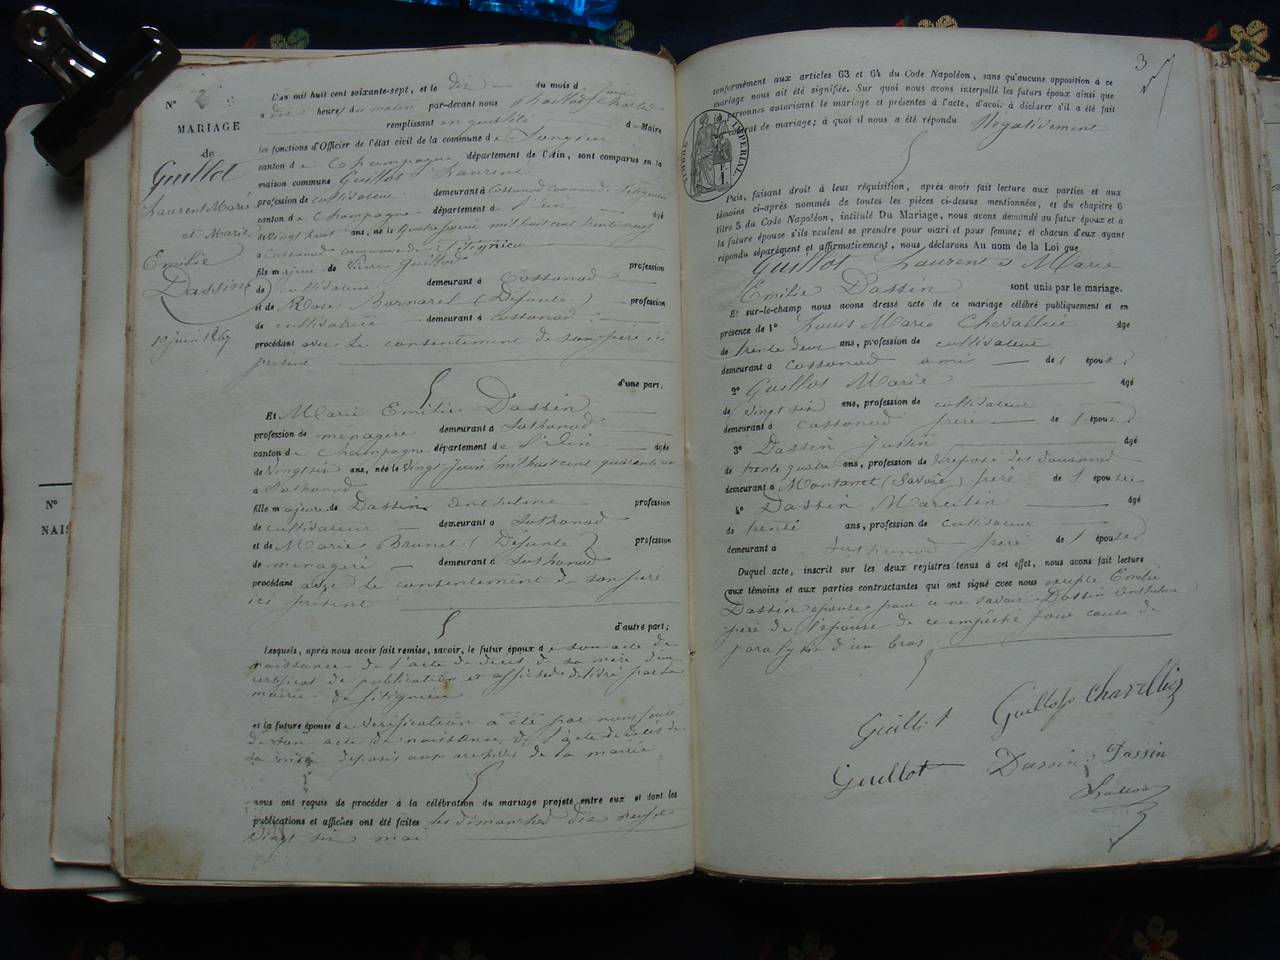 N° 2
MARIAGE
de
Guillot
Laurent Marie
et Marie
Emilie
Dassin
10 juin 1867
L'AN mil huit cent soixante-sept, et le dix du mois d juin
à dix heures du matin par-devant nous
remplissant en qualité d Maire
les fonctions d'Officier de l'état civil de la commune de Songieu
canton de Champagne département de l'Ain, sont comparus en la
maison commune Guillot Laurent
profession de cultivateur demeurant à Cossonod commune de
canton de Champagne département de l'Ain âgé
de vingt huit ans, né le quatre mil huit cent trente neuf
à Cossonod commune de
fils majeur de Pierre Guillot profession
de cultivateur demeurant à Cossonod
et de Rose Bornarel (Défunte) profession
de cultivatrice demeurant à Cossonod
procédant avec le consentement de son père ici
présent
d'une part;
Et Marie Emilie Dassin
profession de ménagère demeurant à Sothonod
canton de Champagne département de l'Ain âgée
de vingt six ans, née le vingt juin mil huit cent quarante un
à Sothonod
fille majeure de Dassin Anthelme profession
de cultivateur demeurant à Sothonod
et de Marie Brunet (Défunte) profession
de ménagère demeurant à Sothonod
procédant avec le consentement de son père
ici présent
d'autre part;
Lesquels, après nous avoir fait remise, savoir, le futur époux de son acte de
naissance de l'acte de décès de sa mère d'un
certificat de publication et affiches délivré par la
mairie de
et la future épouse de vérification a été par nous faite
de son acte de naissance, de l'acte de décès de
sa mère déposés aux archives de la mairie
nous ont requis de procéder à la célébration du mariage projeté entre eux et dont les
publications et affiches ont été faites les dimanches dix neuf et
vingt six mai
N°
NAIS
3
conformément aux articles 63 et 64 du Code Napoléon, sans qu'aucune opposition à ce
mariage nous ait été signifiée. Sur quoi nous avons interpellé les futurs époux ainsi que
personnes autorisant le mariage et présentes à l'acte, d'avoir à déclarer s'il a été fait
contrat de mariage; à quoi il nous a été répondu Négativement
TIMBRE IMPÉRIAL
Puis, faisant droit à leur réquisition, après avoir fait lecture aux parties et aux
témoins ci-après nommés de toutes les pièces ci-dessus mentionnées, et du chapitre 6
titre 5 du Code Napoléon, intitulé Du Mariage, nous avons demandé au futur époux et à
la future épouse s'ils veulent se prendre pour mari et pour femme; et chacun d'eux ayant
répondu séparément et affirmativement, nous déclarons Au nom de la Loi que
Guillot Laurent & Marie
Emilie Dassin sont unis par le mariage.
Et sur-le-champ nous avons dressé acte de ce mariage célébré publiquement et en
présence de 1° Louis Marie Chevallier âgé
de trente deux ans, profession de cultivateur
demeurant à Cossonod ami de l époux
2° Guillot Marie âgé
de vingt six ans, profession de cultivateur
demeurant à Cossonod frère de l époux
3° Dassin Justin âgé
de trente quatre ans, profession de préposé des douanes
demeurant à (Savoie) frère de l épouse
4° Dassin Marcelin âgé
de trente ans, profession de cultivateur
demeurant à Sothonod frère de l épouse
Duquel acte, inscrit sur les deux registres tenus à cet effet, nous avons fait lecture
aux témoins et aux parties contractantes qui ont signé avec nous excepté Emilie
Dassin épouse pour ce ne savoir Dassin Anthelme
père de l'épouse de ce empêché pour cause de
paralysie d'un bras
Guillot Guillot Chavellier
Guillot Dassin Dassin